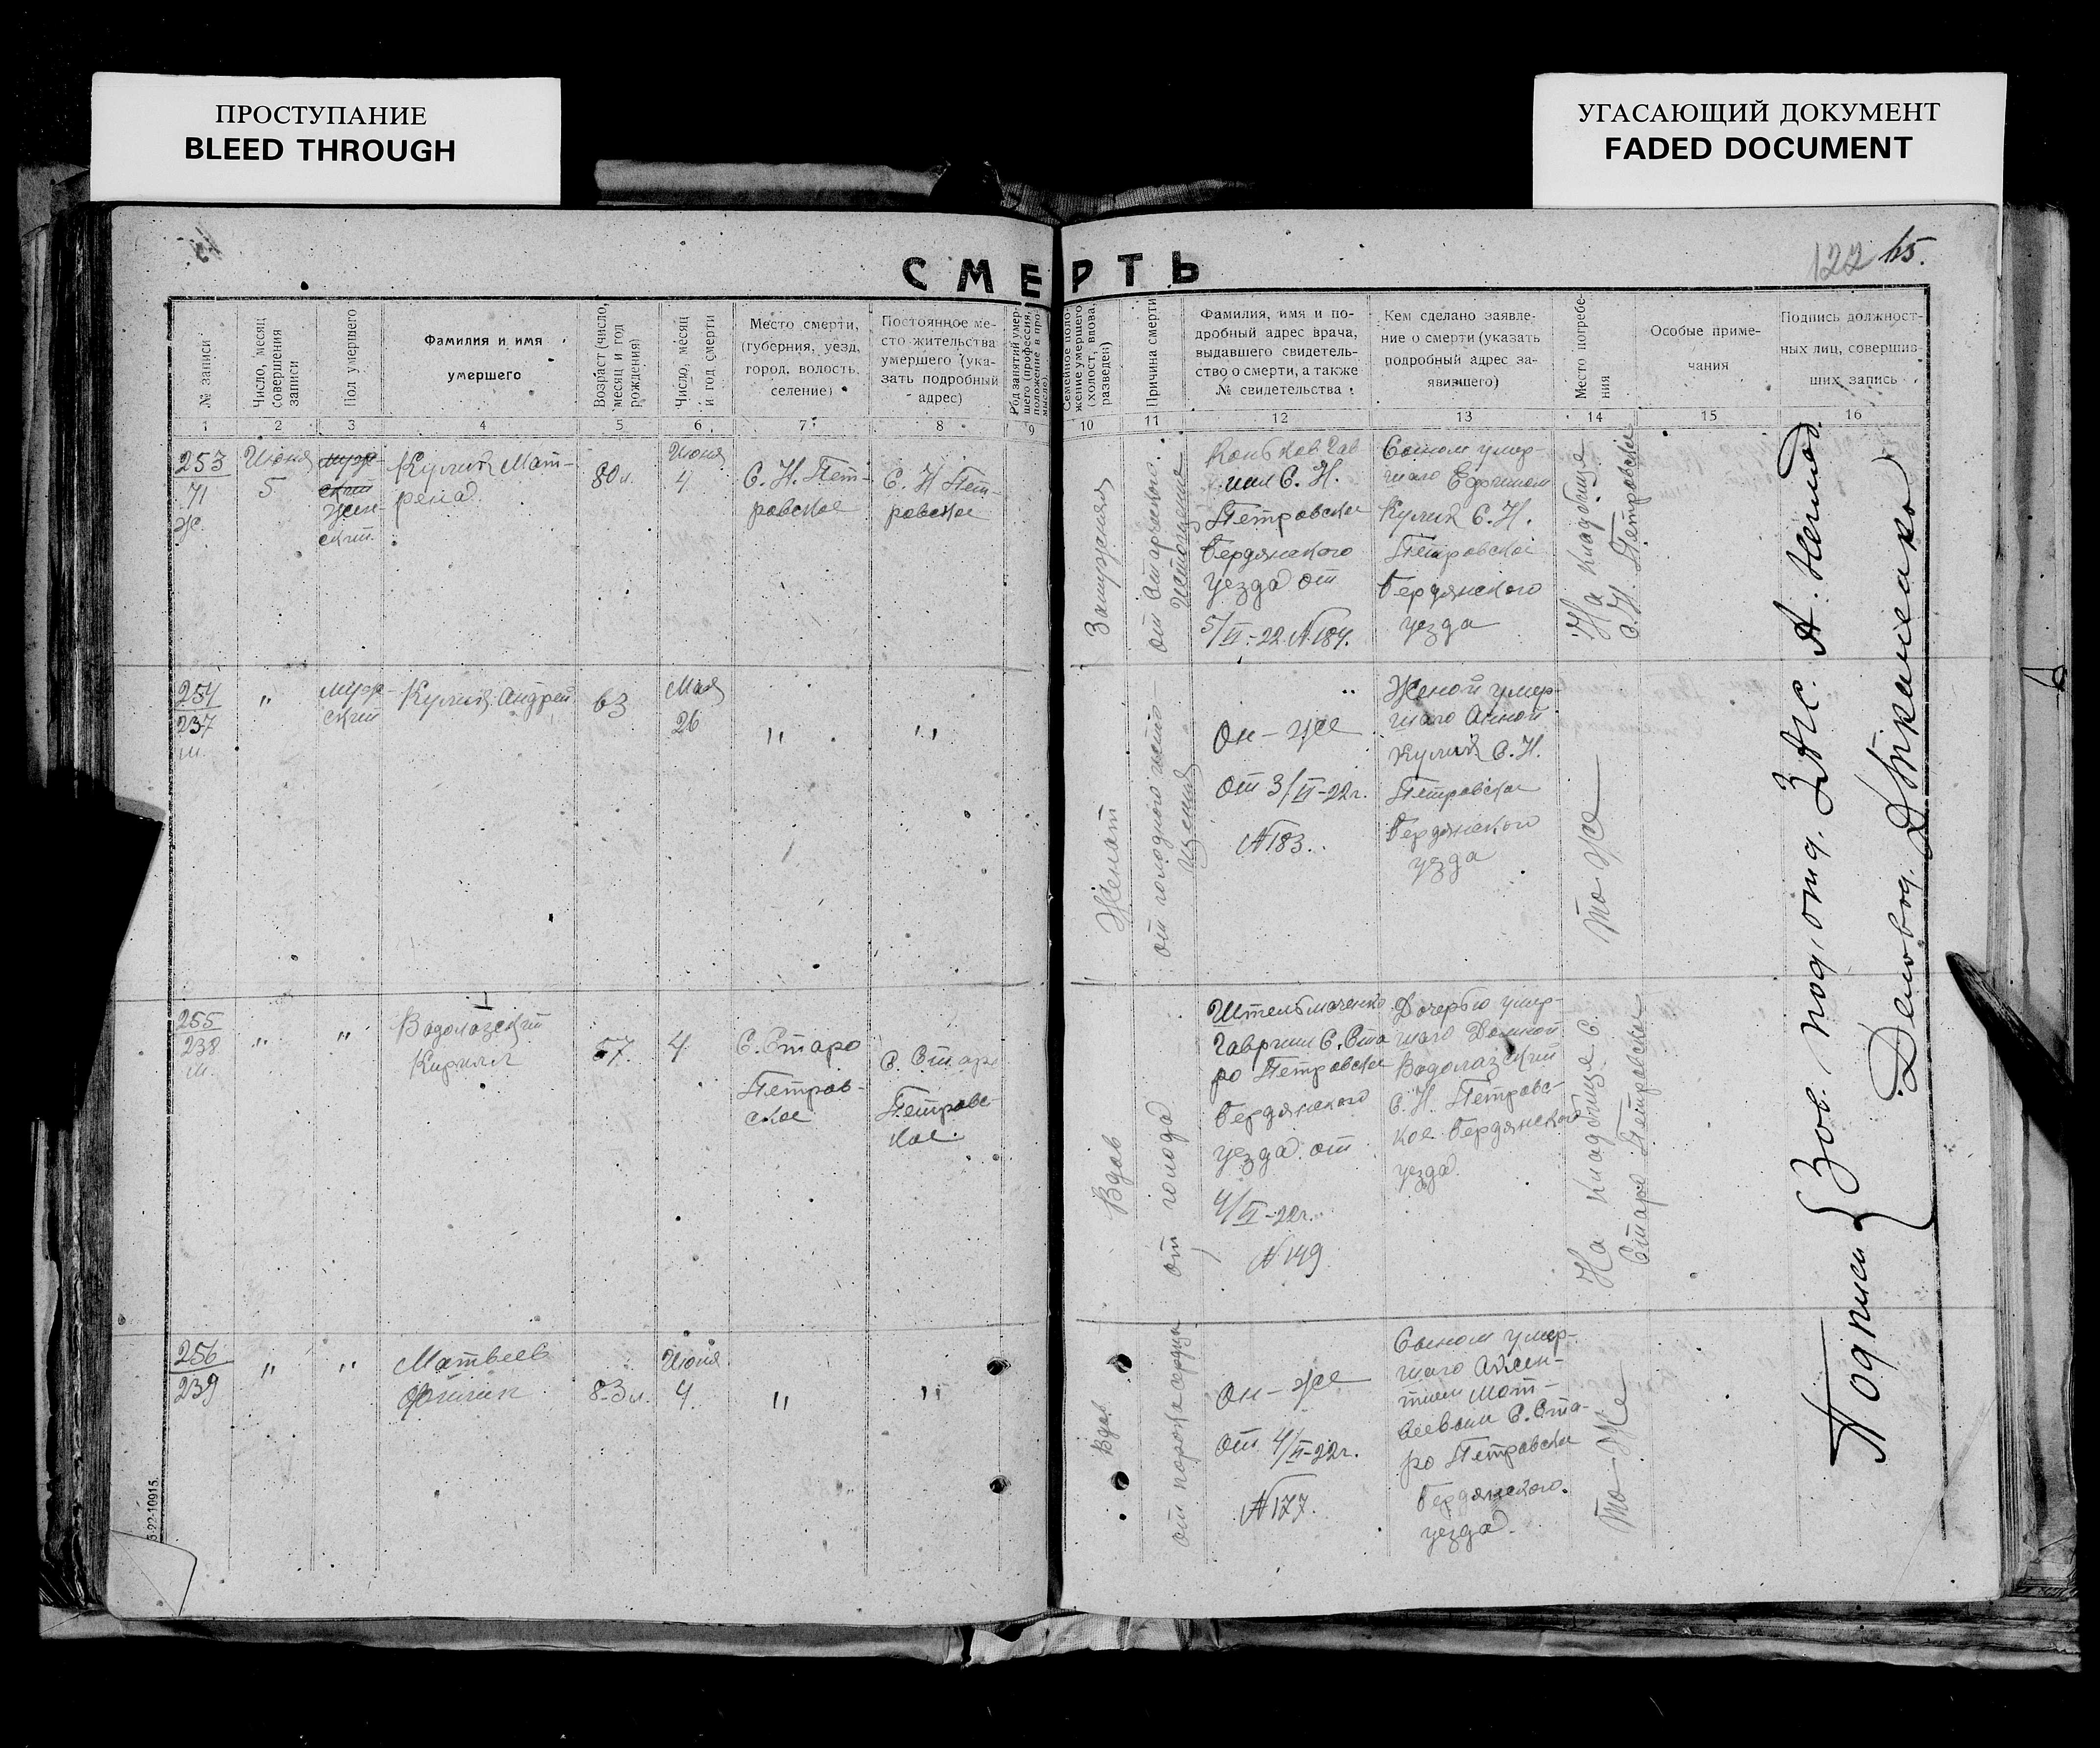 ПРОСТУПАНИЕ
BLEED THROUGH
УГАСАЮЩИЙ ДОКУМЕНТ
FADED DOCUMENT
122 65.
СМЕРТЬ
№ записи
Число, месяц
совершения
записи
Пол умершего
Фамилия и имя
умершего
Возраст (число,
месяц и год
рождения)
Число, месяц
и год смерти
Место смерти,
(губерния, уезд,
город, волость,
селение)
Постоянное ме-
сто жительства
умершего (ука-
зать подробный
адрес)
Род занятий умер-
шего (профессия,
положение в про
мысле).
Семейное поло-
жение умершего
(холост, вдова,
разведен)
Причина смерти
Фамилия, имя и по-
дробный адрес врача,
выдавшего свидетель-
ство о смерти, а также
№ свидетельства
Кем сделано заявле-
ние о смерти (указать
подробный адрес за-
явившего)
Место погребе-
ния
Особые приме-
чания
Подпись должност-
ных лиц, совершив-
ших запись
1 2 3 4 5 6 7 8 9 10 11 12 13 14 15 16
253
71
ж.
Июня
5
муж-
ской
жен-
ский
Кулик Мат-
рена
80 л.
Июня
4
С. Н. Пет-
ровское
С. Н Пет-
ровское
Замужняя
от старческого
истощения
Коньков Гав
С. Н.
Петровское
Бердянского
уезда от
5/VI-22 №184.
Сыном умер-
шаго Ефимом
Кулик С. Н.
Петровское
Бердянского
уезда
На кладбище
С. Н. Петровски
254
237
м.
"
муж-
ской
Кулик Андрей
63
Мая
26
"
"
Женат
от голодного исто
щения
"
Он-же
от 3/VI-22г.
№183.
Женой умер-
шаго Анной
Кулик С. Н.
Петровское
Бердянского
уезда
то же
255
238
м.
"
"
Водолазский
Кирилл
57.
4
С. Старо
Петров-
ское
С. Старо
Петровс-
кое.
Вдов
от голода
Штельмаченко
Гавриил С. Ста
ро Петровское
Бердянского
уезда от
4/VI-22г.
№149
Дочерью умер-
шаго Домной
Водолазский
С. Н. Петровс-
кое Бердянского
уезда.
На кладбище С.
Старо Петровски
256
239
"
"
Матвеев
83 л.
Июня
4.
"
"
Вдов
от порока сердца
Он-же
от 4/VI-22г.
№177.
Сыном умер-
шаго
Мат-
веевым С. Ста-
ро Петровски
Бердянского.
уезда.
то-же
Подписи { Зав. под. отд. Загс. А.
Деловод.
3-22-10915.